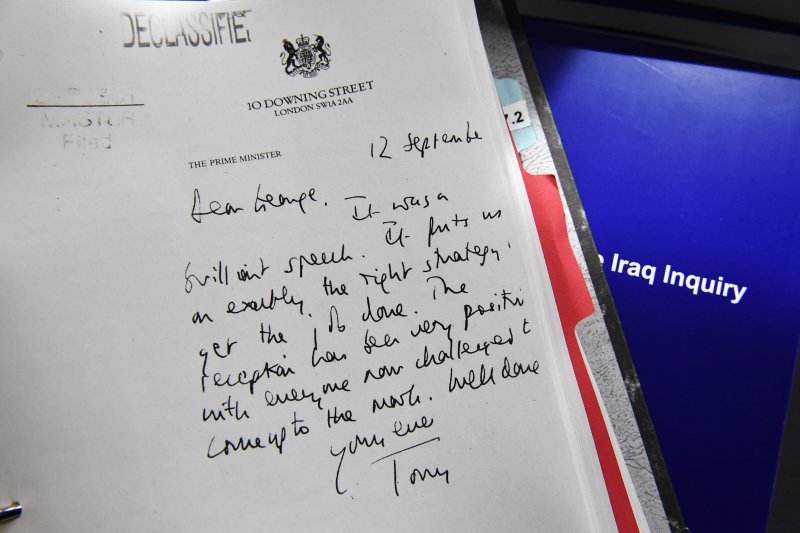 DECLASSIFIED
MASTER
Filed
10 DOWNING STREET
LONDON SW1A 2AA
THE PRIME MINISTER
12 September
Dear George,
It was a
brilliant speech. It puts us
on exactly the right strategy to
get the job done. The
reception has been very positive
with everyone now challenged to
come up to the mark. Well done
Yours ever
Tony
7.2
Iraq Inquiry